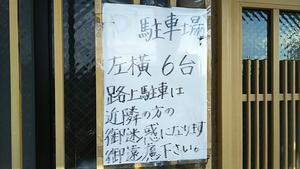 駐車場
左横 6台
路上駐車は
近隣の方の
御迷惑になります
御遠慮下さい。